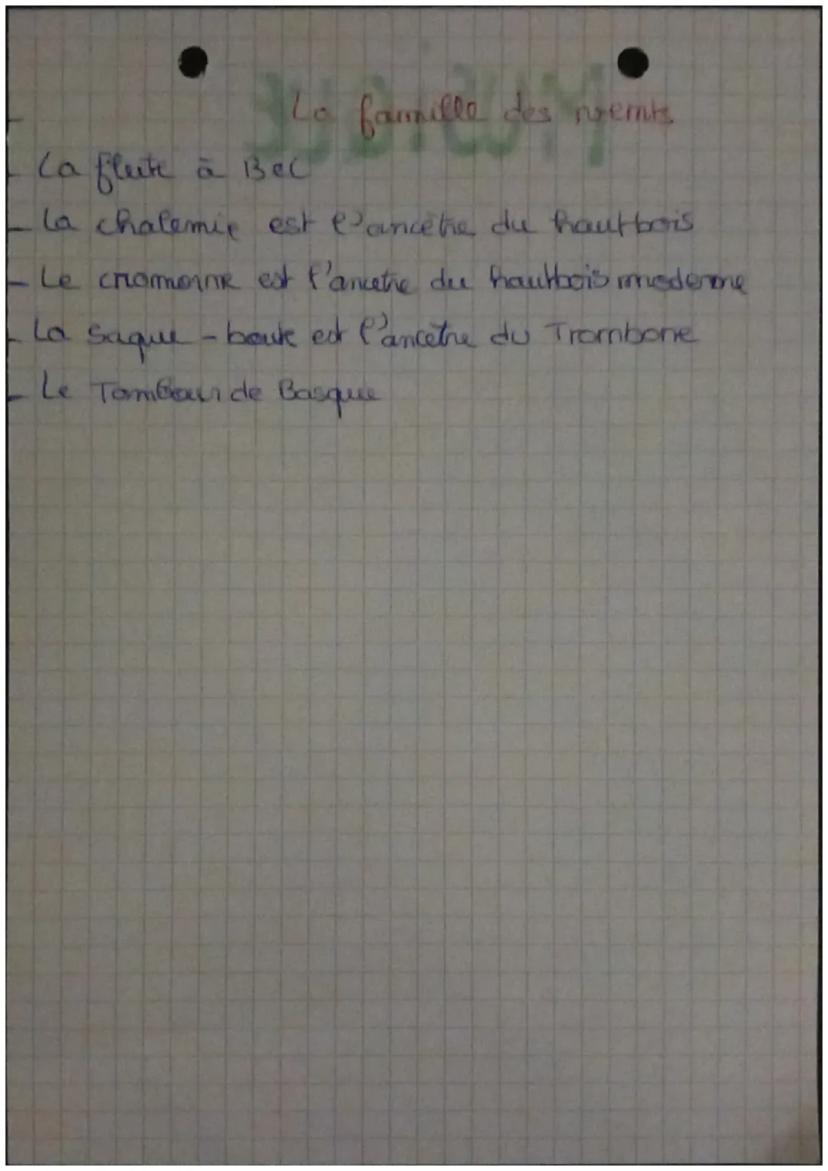 La famille des vents
- La flute à Bec
- La chalemie est l'ancètre du hautbois
- Le cromorne est l'ancetre du hautbois moderne
- La Saque-boute est l'ancètre du Trombone
- Le Tambour de Basque